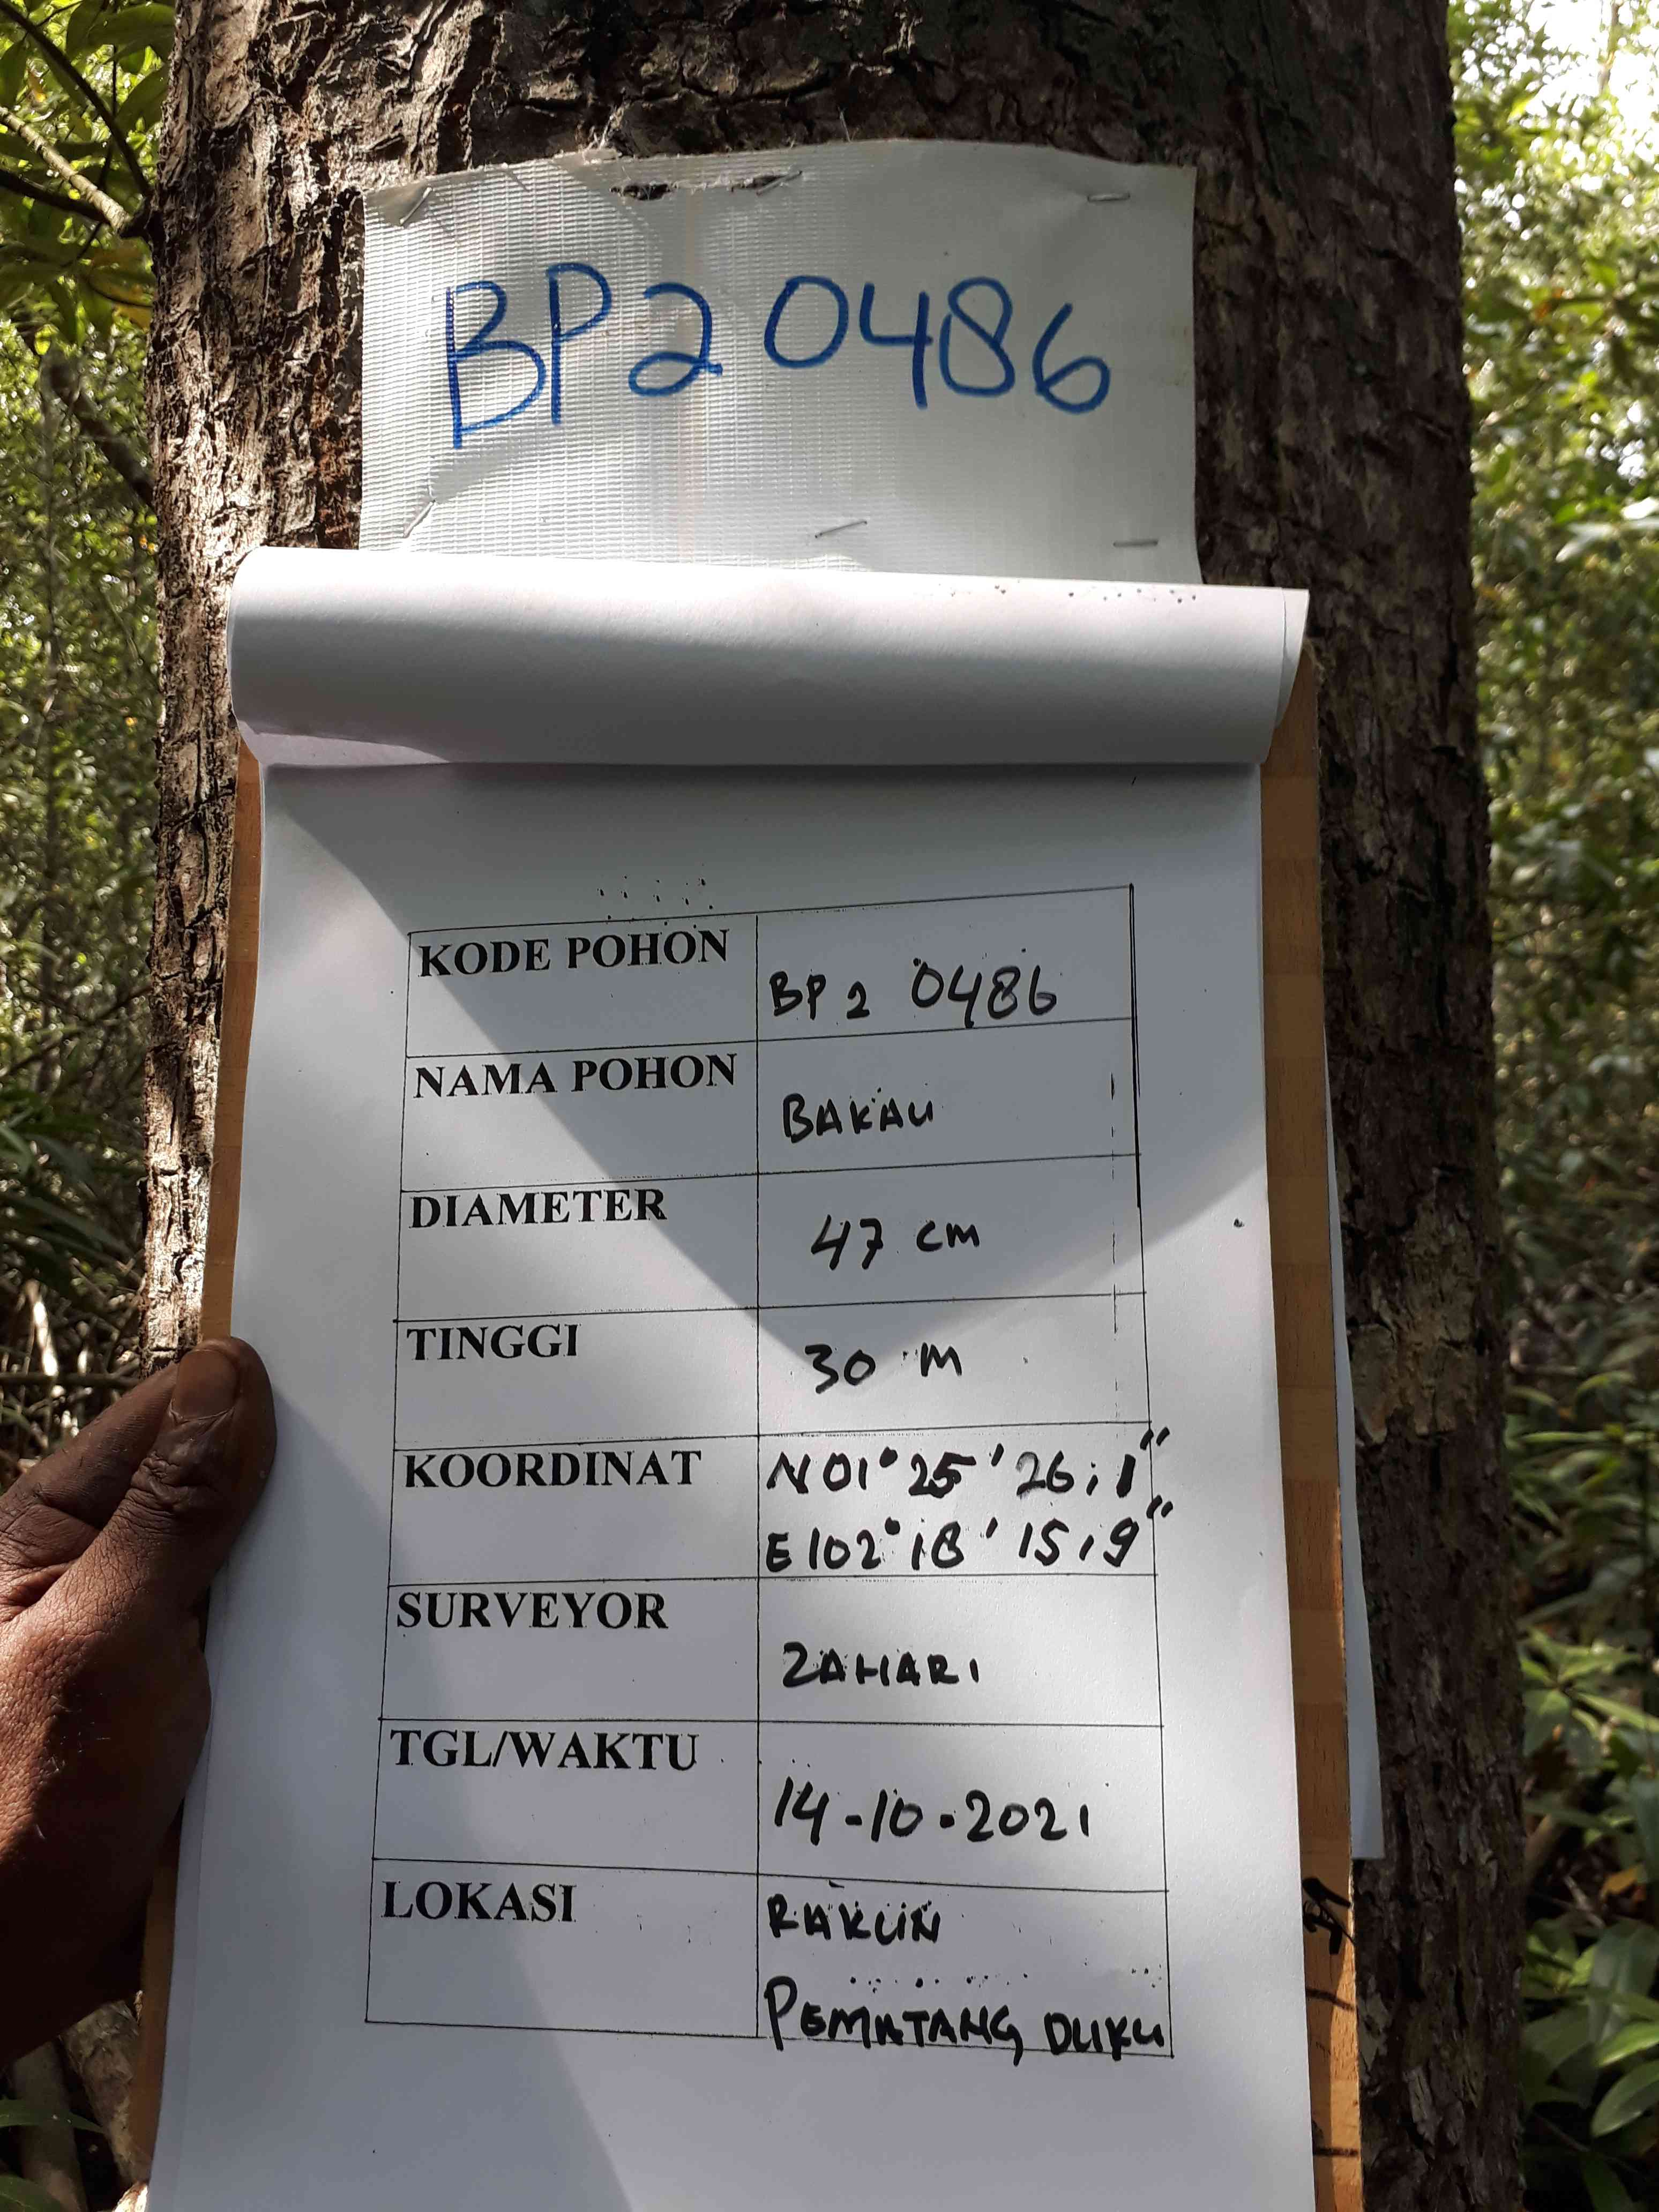 BP2 0486
KODE POHON
BP2 0486
NAMA POHON
BAKAU
DIAMETER
47 cm
TINGGI
30 M
KOORDINAT
N 01° 25' 26,1"
E 102° 18' 15,9"
SURVEYOR
ZAHARI
TGL/WAKTU
14-10-2021
LOKASI
RAKUN
PEMATANG DUKU